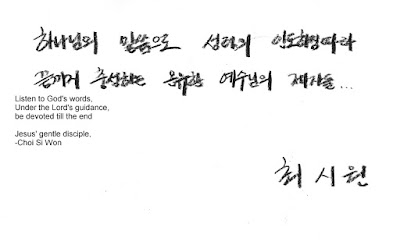 하나님의 말씀으로 성령의 인도하심따라
끝까지 충성하는 온유한 예수님의 제자들...
Listen to God's words,
Under the Lord's guidance,
be devoted till the end
Jesus' gentle disciple,
-Choi Si Won
최시원